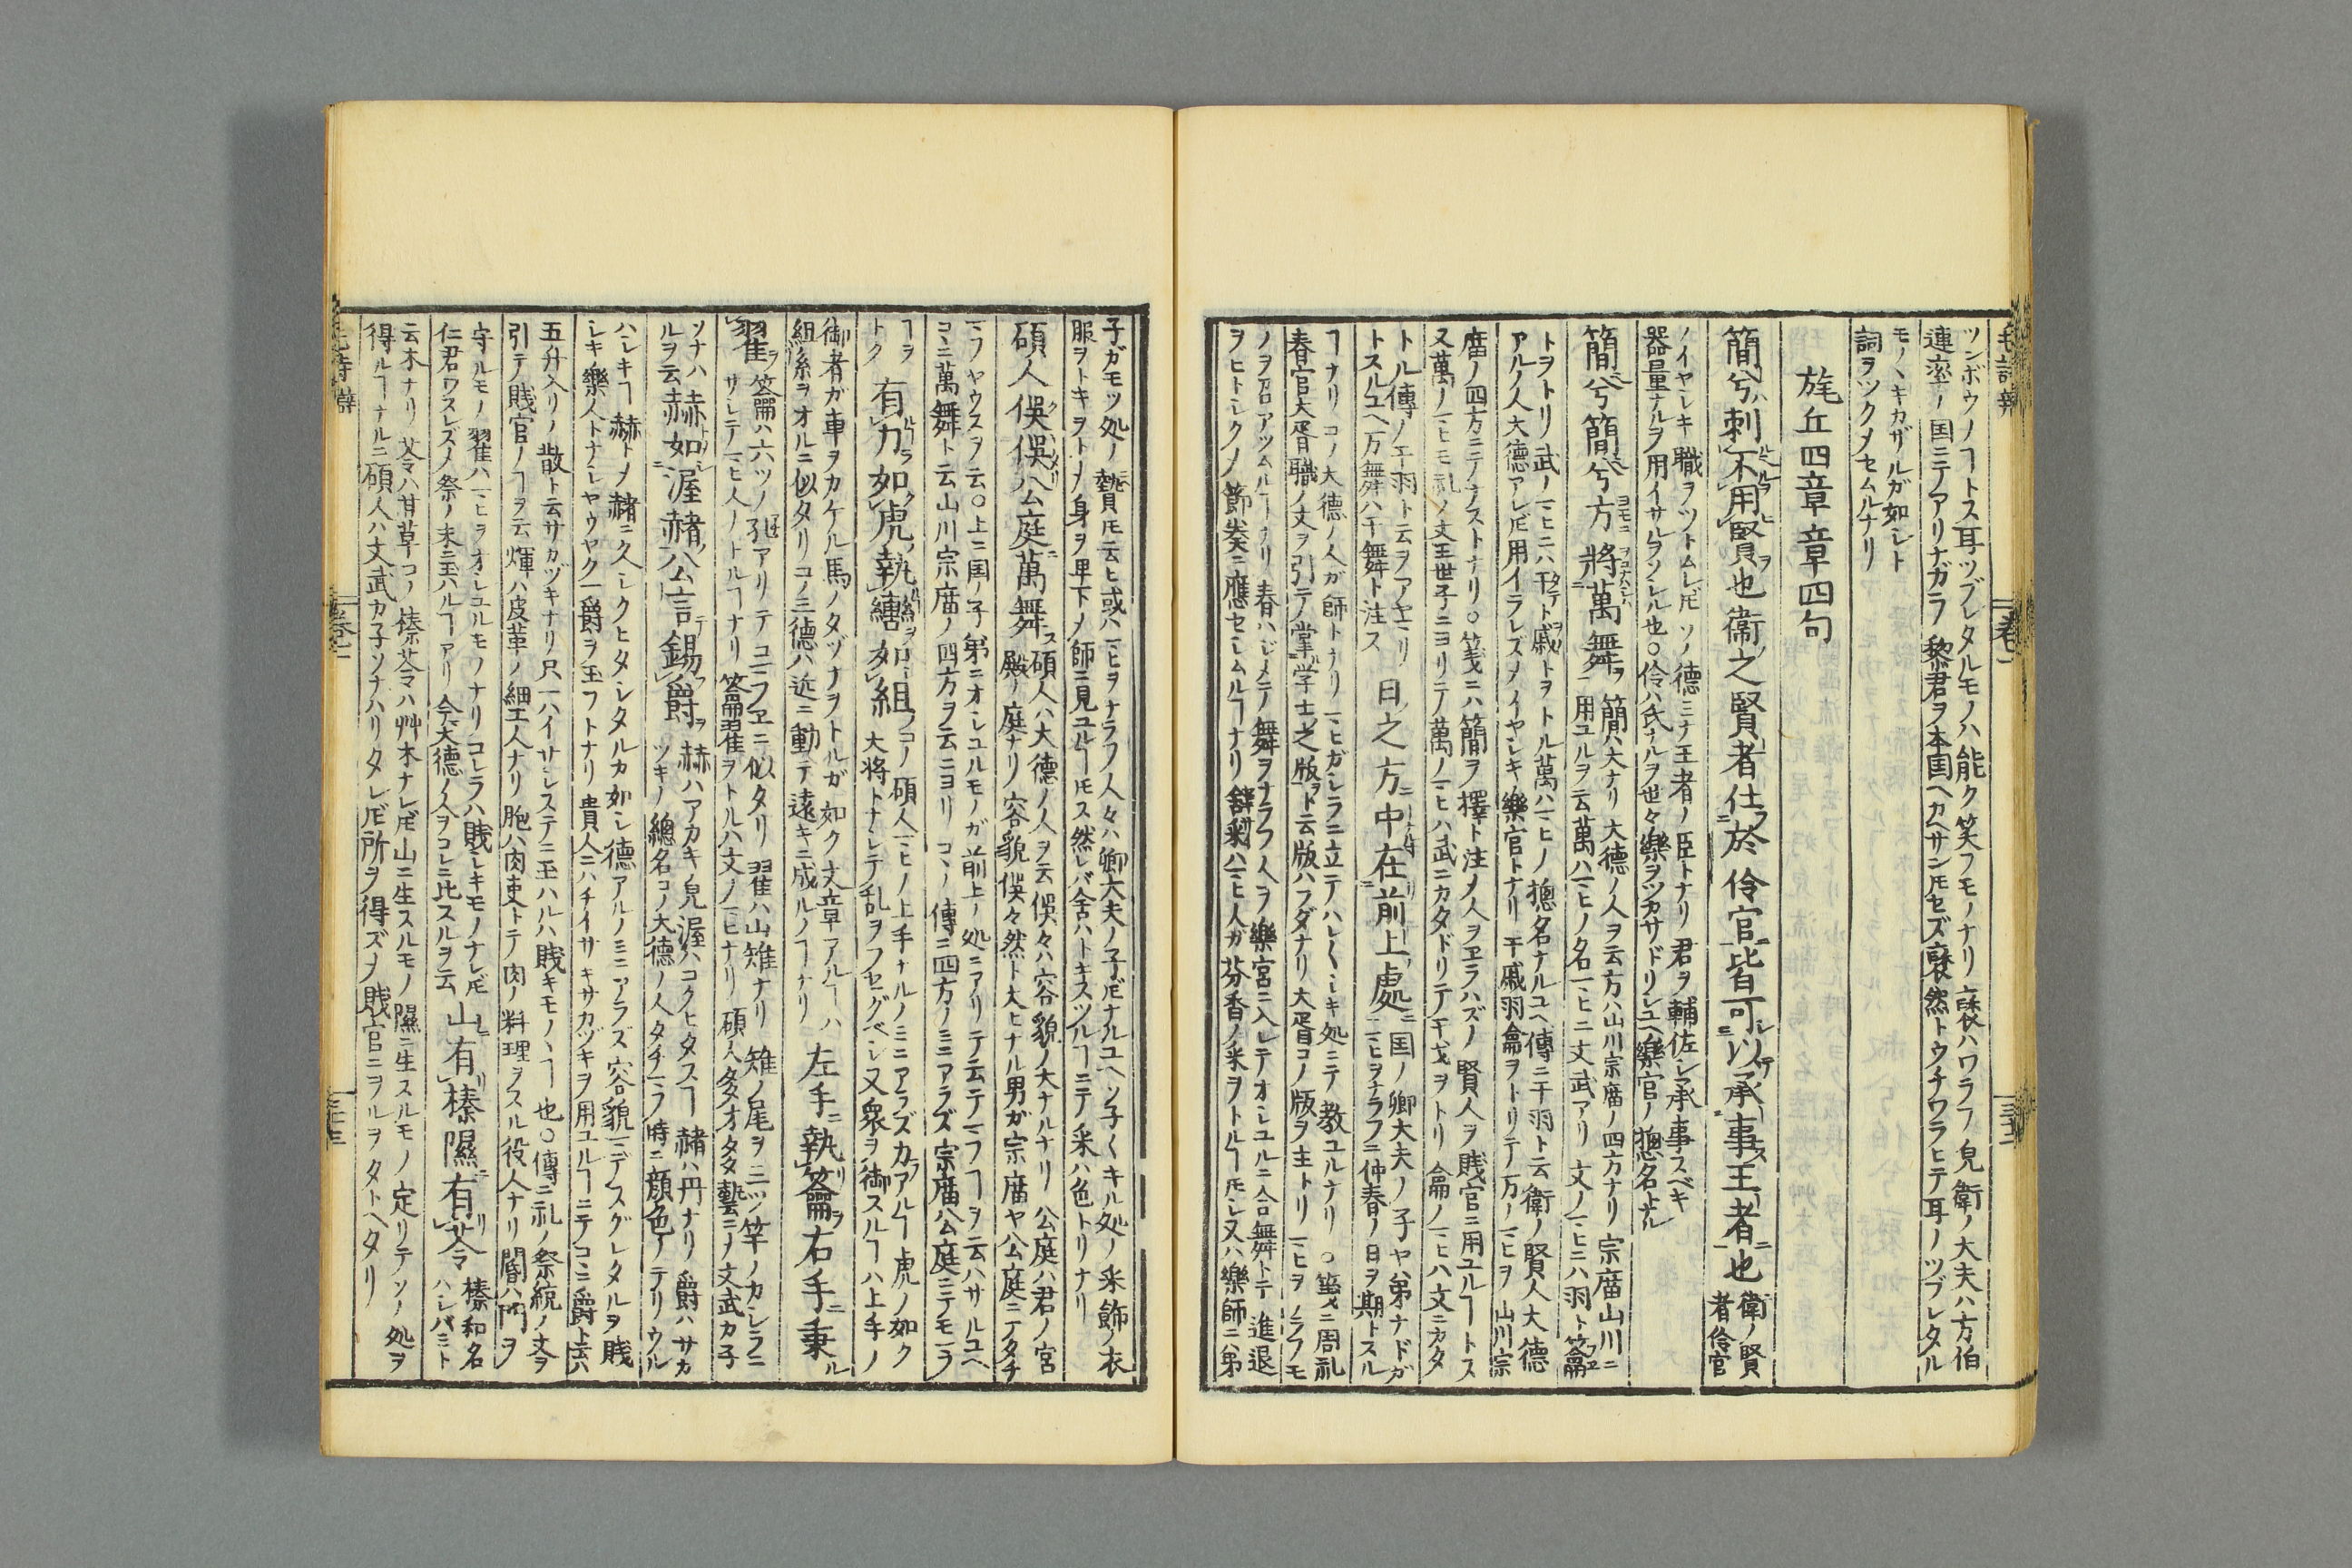 ツンボウノヿトス耳ツブレタルモノハ能ク笑フモノナリ褎ハワラフ皃衛ノ大夫ハ方伯
連率ノ国ニテアリナガラ黎君ヲ本国ヘカヘサンモセズ褎然トウチワラヒテ耳ノツブレタル
モノヽキカザルガ如シト
詞ヲツクメセムルナリ
旄丘四章章四句
簡兮刺不用賢也衞之賢者仕於伶官皆可以承事王者也
衛ノ賢
者伶官
ノイヤシキ職ヲツトムレ𪜈ソノ德ミナ王者ノ臣トナリ君ヲ輔佐シ承事スベキ
器量ナルヲ用イサルヲソシル也○伶ハ氏ナルヲ世々樂ヲツカサドリシユヘ樂官ノ㹅名トナル
簡兮簡兮方將萬舞
簡ハ大ナリ大德ノ人ヲ云方ハ山川宗庿ノ四方ナリ宗庿山川ニ
用ユルヲ云萬ハマヒノ名マヒニ文武アリ文ノマヒニハ羽ト籥
トヲトリ武ノマヒニハ干ト戚トヲトル萬ハマヒノ㹅名ナルユヘ傳ニ干羽ト云衛ノ賢人大德
アルノ人大德アレ𪜈用イラレズメイヤシキ樂官トナリ干戚羽龠ヲトリテ万ノマヒヲ山川宗
庿ノ四方ニテナストナリ○箋ニハ簡ヲ擇ト注メ人ヲヱラハズノ賢人ヲ賎官ニ用ユルヿトス
又萬ノマヒモ礼ノ文王世子ニヨリテ萬ノマヒハ武ニカタドリテ干戈ヲトリ龠ノマヒハ文ニカタ
トル傳ノ干羽ト云ヲアヤマリ
トスルユヘ万舞ハ干舞ト注ス
日之方中在前上處
国ノ卿大夫ノ子ヤ弟ナドガ
マヒヲナラフニ仲春ノ日ヲ期トスル
ヿナリコノ大德ノ人ガ師トナリマヒガシラニ立テハレ〱シキ処ニテ教ユルナリ○箋ニ周礼
春官大胥職ノ文ヲ引テ掌学士之版ト云版ハフダナリ大胥コノ版ヲ主トリマヒヲノラフモ
ノヲ召アツムルヿナリ春ハジメテ舞ヲナラフ人ヲ樂宮ニ入レテオシユルニ合舞トテ進退
ヲヒトシクノ節奏ニ應セシムルヿナリ釋菜ハマヒ人ガ芬香ノ采ヲトルヿモシ又ハ樂師ニ弟
子ガモツ処ノ贄𪜈云ヒ或ハマヒヲナラフ人々ハ卿大夫ノ子𪜈ナルユヘソ子〱キル処ノ采飾ノ衣
服ヲトキヲトメ身ヲ卑下メ師ニ見ユルヿ𪜈ス然レバ舍ハトキスツルヿニテ采ハ色トリナリ
碩人俁俁公庭萬舞
碩人ハ大德ノ人ヲ云俁々ハ容貌ノ大ナルナリ公庭ハ君ノ宮
殿ノ庭ナリ容貌俁々然ト大ヒナル男ガ宗庿ヤ公庭ニテタチ
マフヤウスヲ云○上ニ国ノ子弟ニオシユルモノガ前上ノ処ニアリテ云テマフヿヲ云ハサルユヘ
コヽニ萬舞ト云山川宗庿ノ四方ヲ云ニヨリコヽノ傳ニ四方ノミニアラズ宗庿公庭ニテモマフ
ヿヲ
トク
有力如虎執轡如組
コノ碩人マヒノ上手ナルノミニアラズ力アルヿ虎ノ如ク
大将トナシテ乱ヲフセグベシ又衆ヲ御スルヿハ上手ノ
御者ガ車ヲカケル馬ノタヅナヲトルガ如ク文章アルヿハ
組糸ヲオルニ似タリコノ三德ハ近ニ動テ遠キニ成ルノヿナリ
左手執籥右手秉
翟
籥ハ六ツノ孔アリテコマフヱニ似タリ翟ハ山雉ナリ雉ノ尾ヲ三ツ竿ノカシラニ
サシテマヒ人ノトルヿナリ籥翟ヲトルハ文ノマヒナリ碩人多才多藝ニノ文武カ子
ソナハ
ルヲ云
赫如渥赭公言錫爵
赫ハアカキノ皃渥ハコクヒタスヿ赭ハ丹ナリノ爵ハサカ
ツキノ總名コノ大德ノ人タチマフ時ニ顔色ノテリウル
ハシキヿ赫トメ赭ニ久シクヒタシタルカ如シ德アルノミニアラズ容貌マデスグレタルヲ賎
シキ樂人トナシヤウヤク一爵ヲ玉フトナリ貴人ニハチイサキサカヅキヲ用ユルヿニテコヽニ爵ト云ハ
五升入リノ散ト云サカヅキナリ只一ハイサシステニ玉ハルハ賎キモノヽヿ也○傳ニ礼ノ祭統ノ文ヲ
引テ賎官ノヿヲ云煇ハ皮革ノ細工人ナリ胞ハ肉吏トテ肉ノ料理ヲスル役人ナリ閽ハ門ヲ
守ルモノ翟ハマヒヲオシユルモノナリコレラハ賎シキモノナレ𪜈
仁君ワスレズメ祭ノ末ニ玉ハルヿアリ今大德ノ人ヲコレニ比スルヲ云
山有榛隰有苓
榛和名
ハシバミト
云木ナリ苓ハ甘草コノ榛苓ハ艸木ナレ𪜈山ニ生スルモノ隰ニ生スルモノ定リテソノ処ヲ
得ルヿナルニ碩人ハ文武カ子ソナハリタレ𪜈所ヲ得ズメ賎官ニヲルヲタトヘタリ
毛詩辨
卷二